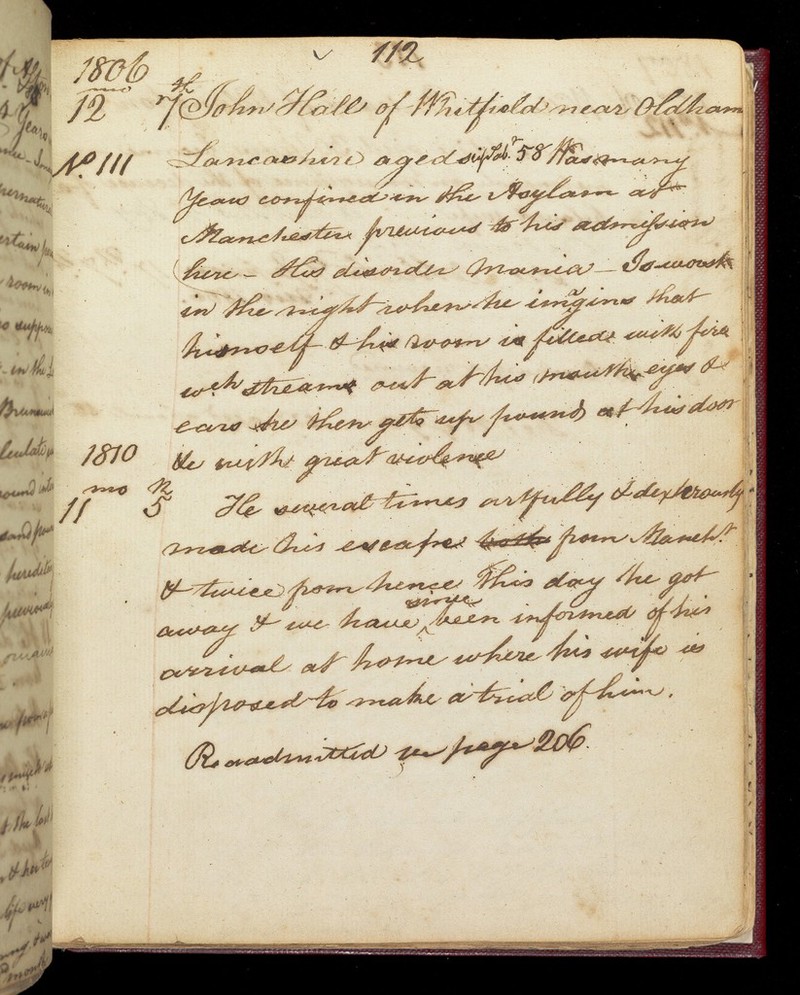 112
1806
mo
12 7th John Hall of Whitfield near Oldham
No. 111 Lancashire aged 58 Was many
Years confined in the Asylam at
Manchester previous to his admission
here - His disorder Mania - Is worst
in the night when he imagins that
himself & his room is filled with fire
wch streams out at his mouth eyes &
ears He then gets up pound at his door
&c with great violence
1810
mo
11 5 He several times artfully & dexterously
made his escape both from Mancht.
& twice from hence This day he got
away & we have since been informed of his
arrival at home where his wife is
disposed to make a trial of him.
Readmitted see page 206.